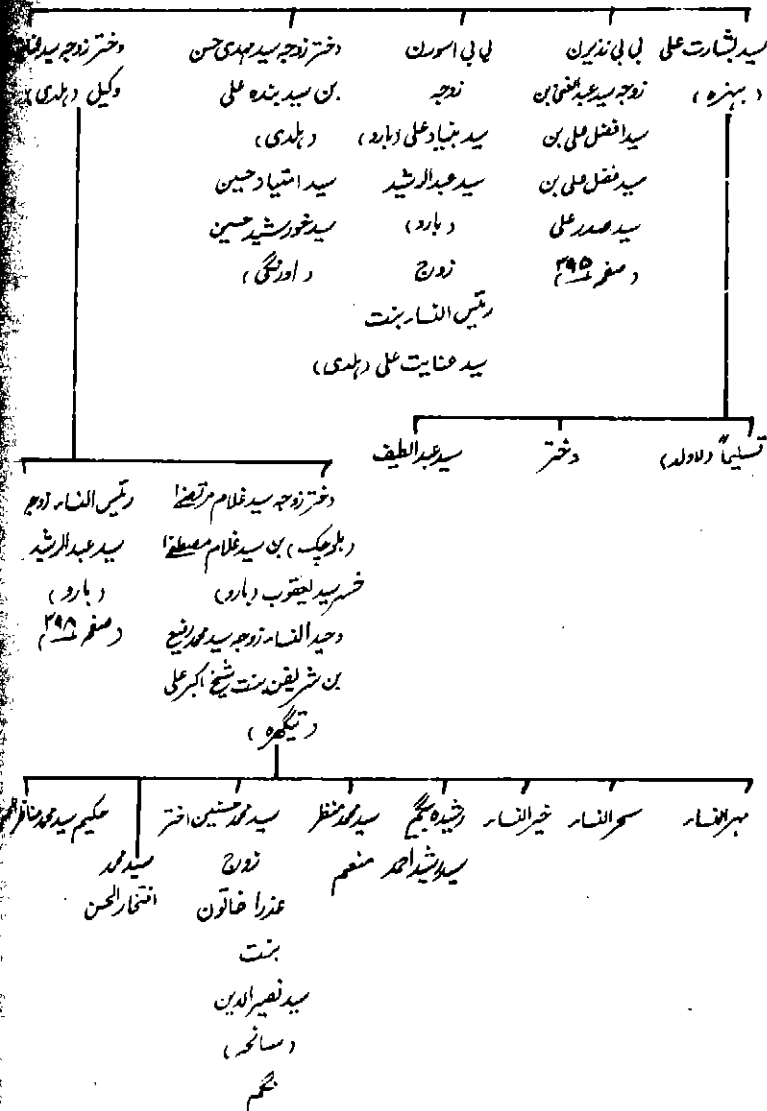 سید بشارت علی
( بہنرہ )
بی بی نذیرن
زوجہ سید عبدالغنی بن
سید افضل علی بن
سید فضل علی بن
سید صدر علی
( صفحہ ۳۹۵ )
بی بی اسورن
زوجہ
سید بنیاد علی ( بارو )
سید عبدالرشید
( بارو )
زوج
رئیس النساء بنت
سید عنایت علی ( بلدی )
دختر زوجہ سید مہدی حسن
بن سید بندہ علی
( بلدی )
سید امتیاز حسین
سید خورشید حسین
( اورنگی )
دختر زوجہ سید
وکیل ( بلدی )
تسلیماً ( لاولد )
دختر
سید عبدالطیف
دختر زوجہ سید غلام مرتضےٰ
( بلوچک ) بن سید غلام مصطفےٰ
خسر سید یعقوب ( بارو )
وحید النساء زوجہ سید محمد رفیع
بن شریفن بنت شیخ اکبر علی
( تیگھرہ )
رئیس النساء زوجہ
سید عبدالرشید
( بارو )
( صفحہ ۳۹۸ )
مہر النساء
سحر النساء
خیر النساء
رشیدہ بیگم
سید رشید احمد
سید محمد منظر
منعم
سید محمد حسنین اختر
زوج
عذرا خاتون
بنت
سید نصیر الدین
( سانحہ )
نگم
سید محمد
افتخار الحسن
حکیم سید محمد مناظر